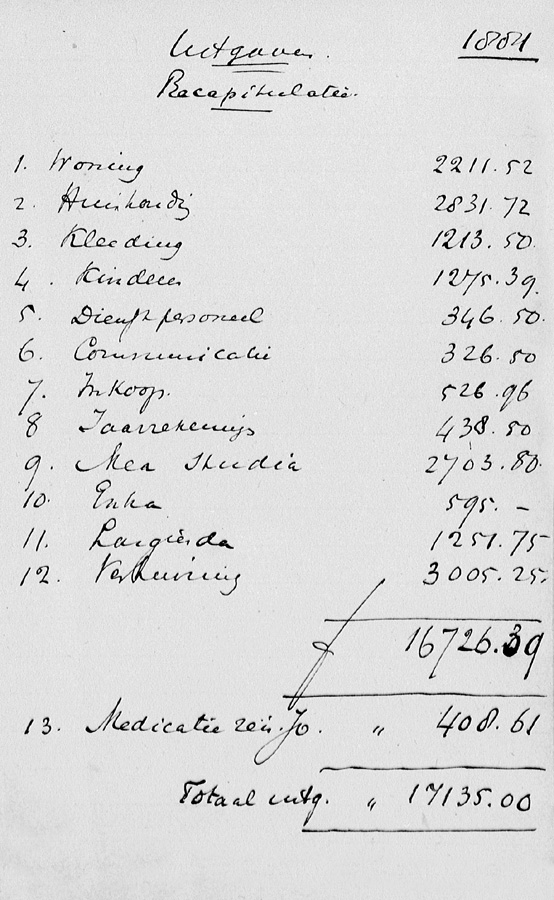 Uitgaven. 1884
Recapitulatie.
1. Woning 2211.52
2. Huishoudg 2831.72
3. Kleeding 1213.50.
4. Kinderen 1275.39.
5. Dienstpersoneel 346.50.
6. Communicatie 326.50
7. Inkoop. 526.96
8 Jaarrekenings 438.50
9. Mea Studia 2703.80.
10. Extra 595. –
11. Largienda 1251.75
12. Verhuizing 3005.25.
ƒ 16726.39
13. Medicatie reis Jo. " 408.61
Totaal uitg. " 17135.00